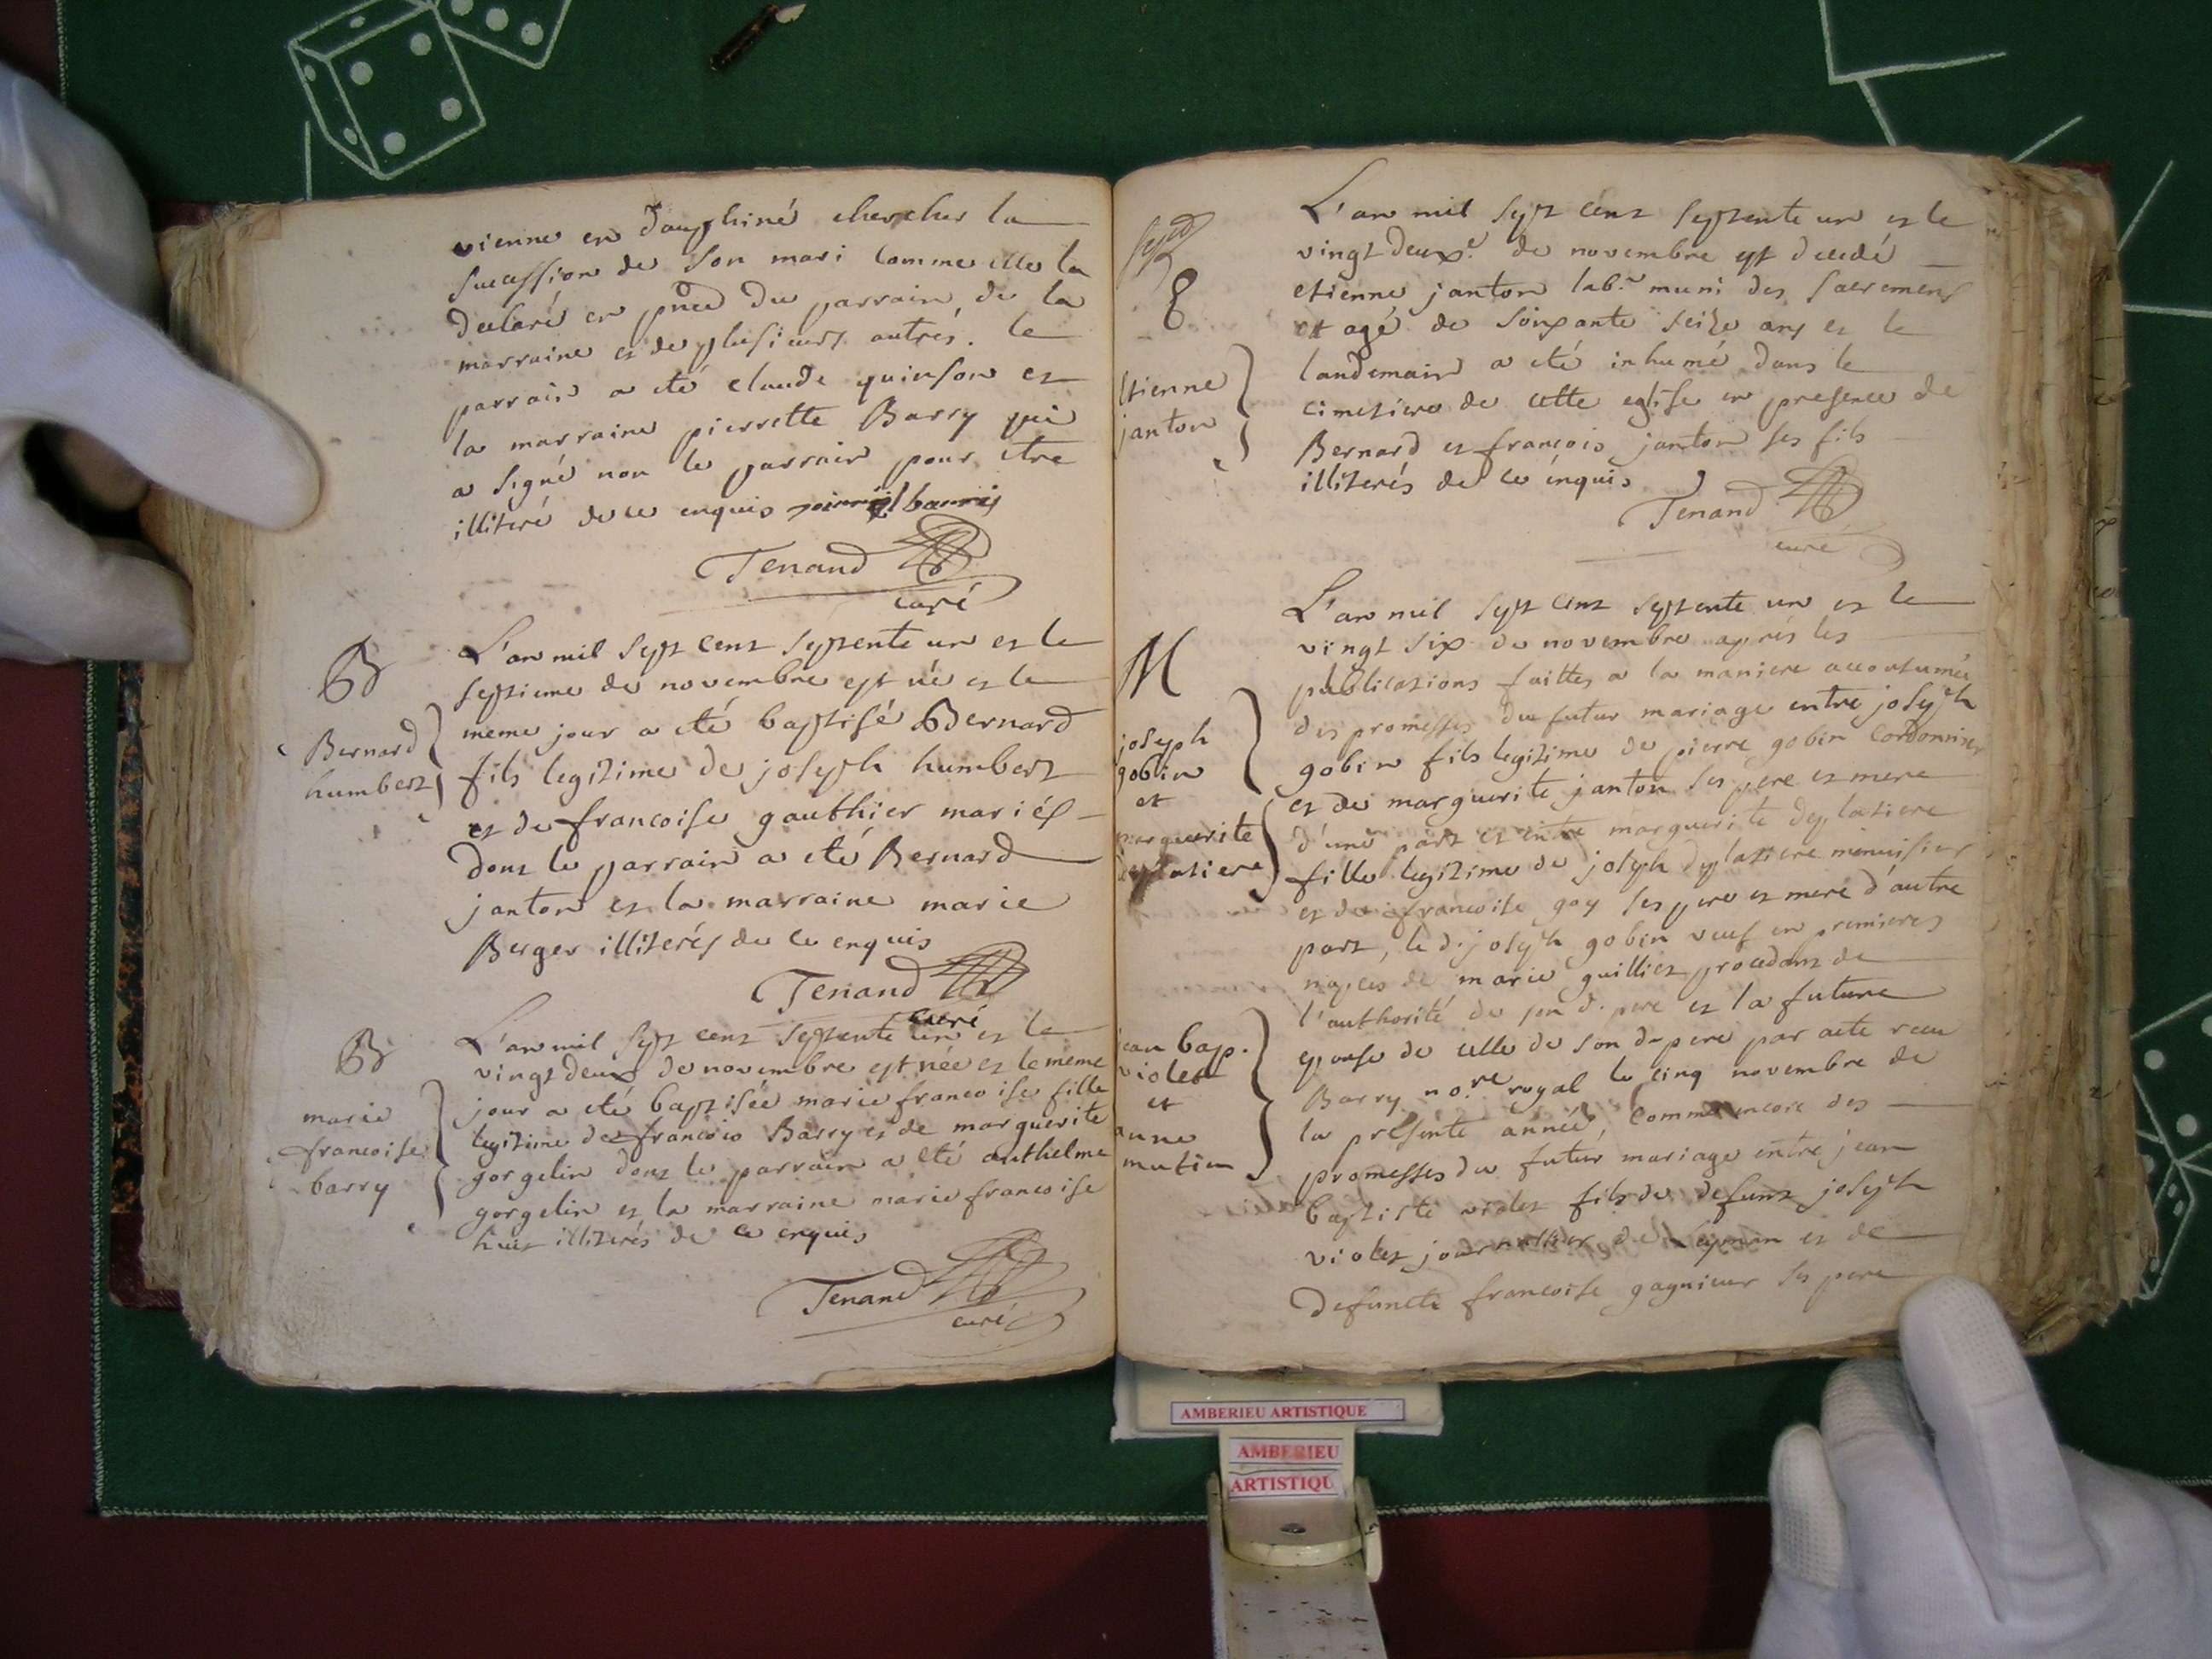 vienne en dauphiné chercher la
succession de son mari comme elle la
declaré en pnce du parrain, de la
marraine et de plusieurs autres. le
parrain a eté claude quinson et
la marraine pierrette Barry qui
a signé non le parrain pour etre
illiteré de ce enquis
Tenand
curé
B
Bernard
humbert
L'an mil sept cent septente un et le
septieme de novembre est né et le
meme jour a eté baptisé Bernard
fils legitime de joseph humbert
et de francoise gauthier mariés
dont le parrain a eté Bernard
janton et la marraine marie
Berger illiterés de ce enquis
Tenand
curé
B
marie
francoise
barry
L'an mil sept cent septente un et le
vingt deux de novembre est née et le meme
jour a eté baptisée marie francoise fille
legitime de francois Barry et de marguerite
gorgelin dont le parrain a eté anthelme
gorgelin et la marraine marie francoise
huit illiterés de ce enquis
Tenand
curé
Etienne
janton
L'an mil sept cent septente un et le
vingt deuxe. de novembre est decedé
etienne janton labr. muni des sacremens
et agé de soixante seize ans et le
landemain a eté inhumé dans le
cimetiere de cette eglise en presence de
Bernard et françois janton ses fils
illiterés de ce enquis
Tenand
curé
M
joseph
gobin
et
marguerite
deplatiere
L'an mil sept cent septente un et le
vingt six de novembre aprés les
publications faittes a la maniere accoutumée
des promesses du futur mariage entre joseph
gobin fils legitime de pierre gobin cordonnier
et de marguerite janton ses pere et mere
d'une part et entre marguerite deplatiere
fille legitime de joseph deplatiere menuisier
et de francoise gay ses pere et mere d'autre
part, le d. joseph gobin veuf en premieres
nopces de marie guilliet procedant de
l'authorité de son d. pere et la future
epouse de celle de son d. pere par acte recu
Barry nore. royal le cinq novembre de
la presente année, comme encore des
promesses du futur mariage entre jean
baptiste violet fils de defunt joseph
violet journallier de et de
defuncte francoise gagnieur ses pere
jean bap.
violet
et
anne
mutin
AMBERIEU ARTISTIQUE
AMBERIEU
ARTISTIQU